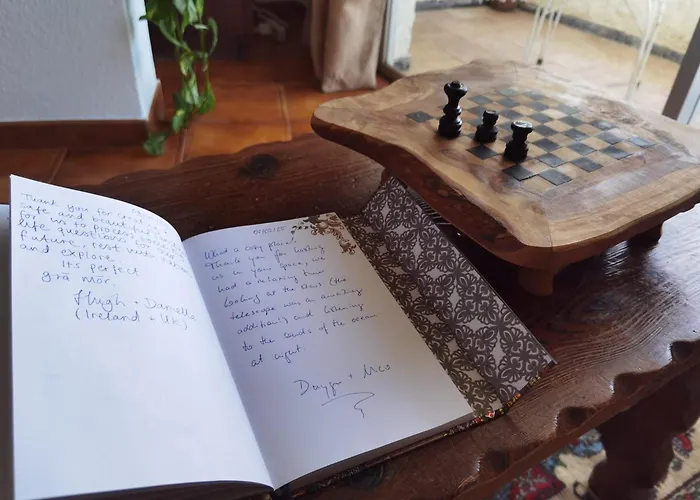 Thank you for creating a
safe and beautiful space
for us to process some big
life questions for our
future, rest with nature
and explore.
Its perfect
grá mór,
Hugh + Danielle
(Ireland + UK)
What a cosy place!
Thank you for hosting
us in your space, we
had a relaxing time
looking at the stars (the
telescope was an amazing
addition!) and listening
to the sounds of the ocean
at night.
+ Nico